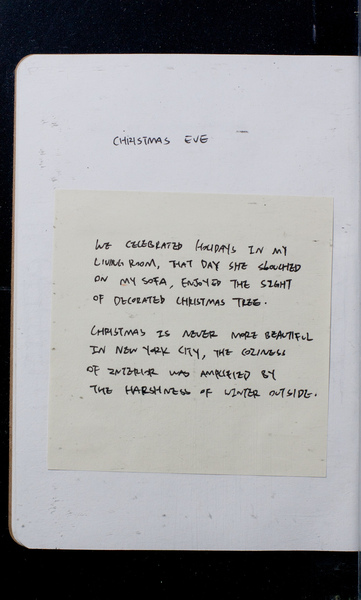 CHRISTMAS EVE
WE CELEBRATED HOLIDAYS IN MY
LIVING ROOM, THAT DAY SHE SLOUCHED
ON MY SOFA, ENJOYED THE SIGHT
OF DECORATED CHRISTMAS TREE.
CHRISTMAS IS NEVER MORE BEAUTIFUL
IN NEW YORK CITY, THE COZINESS
OF INTERIOR WAS AMPLIFIED BY
THE HARSHNESS OF WINTER OUTSIDE.